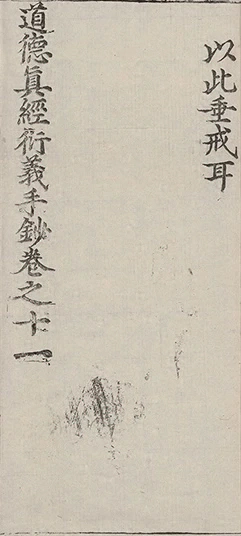 以此垂戒耳
道德眞經衍義手鈔卷之十一